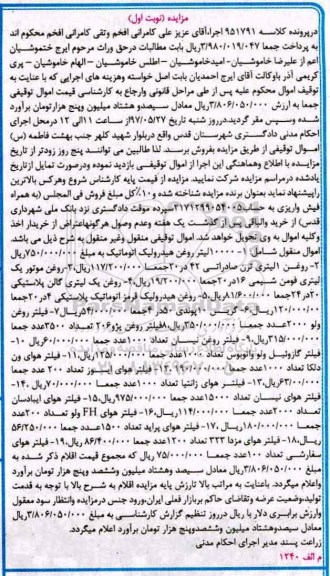 مزایده (نوبت اول)
درپرونده کلاسه ۹۵۱۷۹۱ اجرا،آقای عزیز علی کامرانی افخم وتقی کامرانی افخم محکوم اند
به پرداخت جمعا ۳/۹۸۰/۰۱۹/۰۴۷ریال بابت مطالبات درحق وراث مرحوم ایرج خنموشیان
اعم از علیرضا خاموشیان- امیدخاموشیان – اطلس خاموشیان – الهام خاموشیان – پری
کریمی آذر باوکالت آقای ایرج احمدیان بابت اصل خواسته وهزینه های اجرایی که با عنایت به
توقیف اموال محکوم علیه پس از طی مراحل قانونی وارجاع به کارشناسی قیمت اموال توقیفی
جمعا به ارزش ۳/۸۰۶/۰۵۰/۰۰۰ریال معادل سیصدو هشتاد میلیون وپنج هزارتومان برآورد
شده وسپس مقر گردید.درروز شنبه تاریخ ۹۷/۰۵/۲۷از ساعت ۱۱الی ۱۲ درمحل اجرای
احکام مدنی دادگستری شهرستان قدس واقع دربلوار شهید کلهر جنب بهشت فاطمه (س)
اموال توقیفی از طریق مزایده بفروش برسد. لذا طالبین می توانند پنج روز زودتر از تاریخ
مزایده با اطلاع وهماهنگی این اجرا از اموال توقیفی بازدید نموده ودرصورت تمایل ازتاریخ
یادشده درمراسم مزایده شرکت نمایید. مزایده از قیمت پایه کارشناس شروع وهرکس بالاترین
راپیشنهاد نماید بعنوان برنده مزایده شناخته شده و۱۰٪کل مبلغ فروش فی المجلس (به همراه
فیش واریزی به حساب ۲۱۷۱۲۹۹۰۵۴۰۰۵سپرده موقت دادگستری نزد بانک ملی شهرداری
قدس) از خرید والباقی پس از گذشت یک هفته وعدم وصول هرگونه‌اعتراض از خریدار اخذ
وکلیه اموال به وی تحویل خواهد شد. اموال توقیفی منقول وغیر منقول به شرح ذیل می باشد.
اموال منقول شامل ۱- ۱۰۰۰۰لیتر روغن هیدرولیک اتوماتیک به مبلغ ۷۵۰/۰۰۰/۰۰۰ریال
۲- روغن ۱لیتری ترن صادراتی ۴۲ در۲۰جمعا ۱۱۷/۲۰۰/۰۰۰ریال،۳-روغن موتور یک
لیتری فومن شیمی ۱۶در۲۰جمعا ۱۹/۲۰۰/۰۰۰ریال۴- روغن یک لیتری گالن پلاستیکی
۲۰در۲۴جمعا ۸۱/۶۰۰/۰۰۰ریال۵- روغن هیدرولیک قرمز اتوماتیک پلاستیکی ۴در۲۰جمعا
۱۲۰/۰۰۰/۰۰۰ریال۶- گریس ۱پوندی ۵۰در ۴جمعا ۵۴/۰۰۰/۰۰۰ریال ۷- فیلتر روغن
ولو ۲۰۰۰عدد جمعا ۲۵۰/۰۰۰/۰۰۰ریال۸فیلتر روغن پژو۲۰۶ تعداد ۳۵۰۰عدد جمعا
۳۱۵/۰۰۰/۰۰۰ریال۹- فیلتر روغن نیسان تعداد ۱۰۰۰عدد جمعا ۶۰/۰۰۰/۰۰۰ریال ۱۰-
فیلتر گازوئیل ولو واتوبوس تعداد ۱۰۰۰عدد جمعا ۱۲۵/۰۰۰/۰۰۰ریال۱۱- فیلتر هوای ون
دلکا تعداد ۱۰۰۰عدد جمعا ... ریال ۱۲- فیلتر هوای ایسوز تعداد ۲۰۰ عدد جمعا
۶۳/۰۰۰/۰۰۰ریال۱۳- فیلتر هوای زانتیا تعداد ۱۰۰۰عدد جمعا ۷۰/۰۰۰/۰۰۰ریال ۱۴-
فیلتر هوای نیسان تعداد ۱۵۰۰۰عدد جمعا ۹۷۵/۰۰۰/۰۰۰ریال۱۵- فیلتر هوای ایبادسان
تعداد ۲۰۰۰عدد جمعا ۱۱۴/۰۰۰/۰۰۰ریال۱۶- فیلتر هوای FH ولو تعداد ۲۰۰عدد
جمعا ۱۸۰/۰۰۰/۰۰۰ریال ۱۷- فیلتر هوای پراید تعداد ۱۵۰۰عدد جمعا ۵۶/۲۵۰/۰۰۰
ریال،۱۸- فیلتر هوای مزدا ۳۲۳ تعداد ۱۲۰۰عدد جمعا ۸۶/۴۰۰/۰۰۰ریال ۱۹- فیلتر هوای
سفارشی تعداد ۱۰۰عدد جمعا ۷۵/۰۰۰/۰۰۰ ریال که مجموع قیمت اقلام ذکر شده به
مبلغ ۳/۸۰۶/۰۵۰/۰۰۰ریال معادل سیصدو هشتاد میلیون وششصد وپنج هزار تومان برآورد
واعلام میگردد. باعنایت به مراتب بالا تارزش پایه مزایده اقلام به شرح بالا با توجه به قدمت
تولید،وضعیت عرضه وتقاضای حاکم بربازار فعلی ایران،ورود جنس درمزایده وانتظار سود معقول
وارزش برابری دلار با ریال درروز تنظیم گزارش کارشناسی به مبلغ ۳/۸۰۶/۰۵۰/۰۰۰ریال
معادل سیصدوهشتاد میلیون وششصدوپنج هزار تومان برآورد اعلام میگردد.
زراعت پسند مدیر اجرای احکام مدنی
م الف ۱۲۴۰